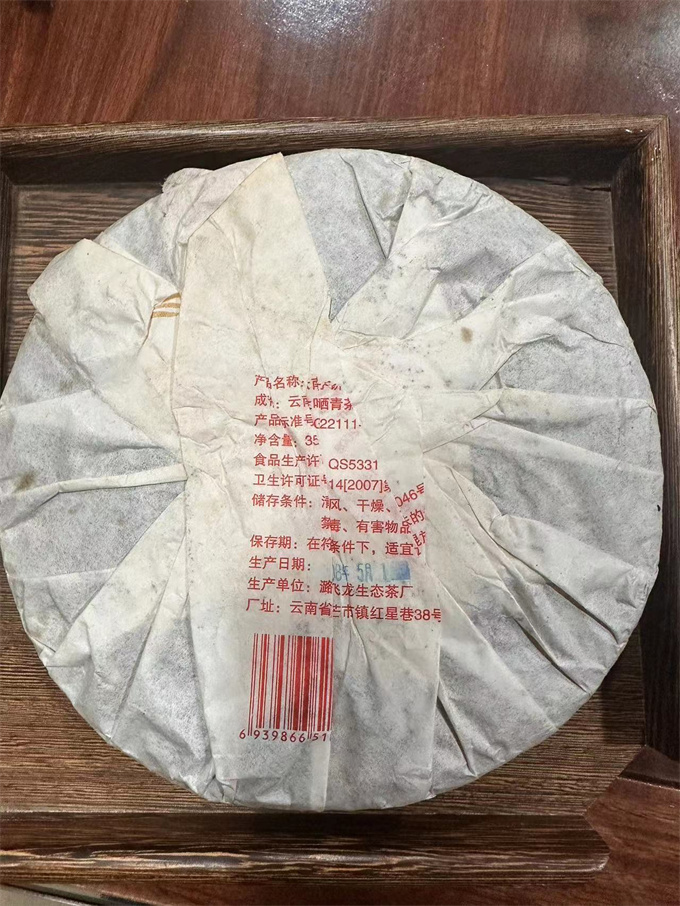 产品名称:
成 : 云南晒青茶
产品标准号 22111-
净含量: 35
食品生产许 QS5331
卫生许可证 14[2007] 046号
储存条件: 风、干燥、
毒、有害物品的
保存期: 在符 条件下, 适宜
生产日期: 8年 5月 1
生产单位: 潞 飞龙生态茶厂
厂址: 云南省 市镇红星巷38号
6 939866 51